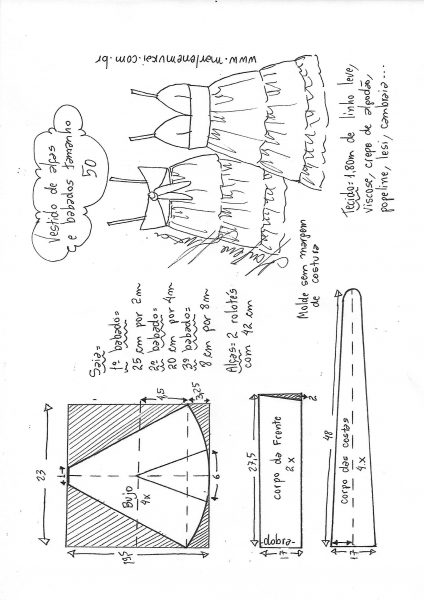 www.marlenemukai.com.br
Vestido de alças
e babados tamanho
50
Tecido: 1,80m de linho leve,
viscose, crepe de algodão,
popeline, lesi, cambraia...
Saia:
1º babado:
25 cm por 2m
2º babado:
20 cm por 4m
3º babado:
8 cm por 8m
Alças: 2 rolotês
com 42 cm
Molde sem margem
de costura
23
1
4,5
3,25
Bojo
4x
6
19,5
27,5
2
corpo da frente
2x
dobra
17
48
corpo das costas
4x
17